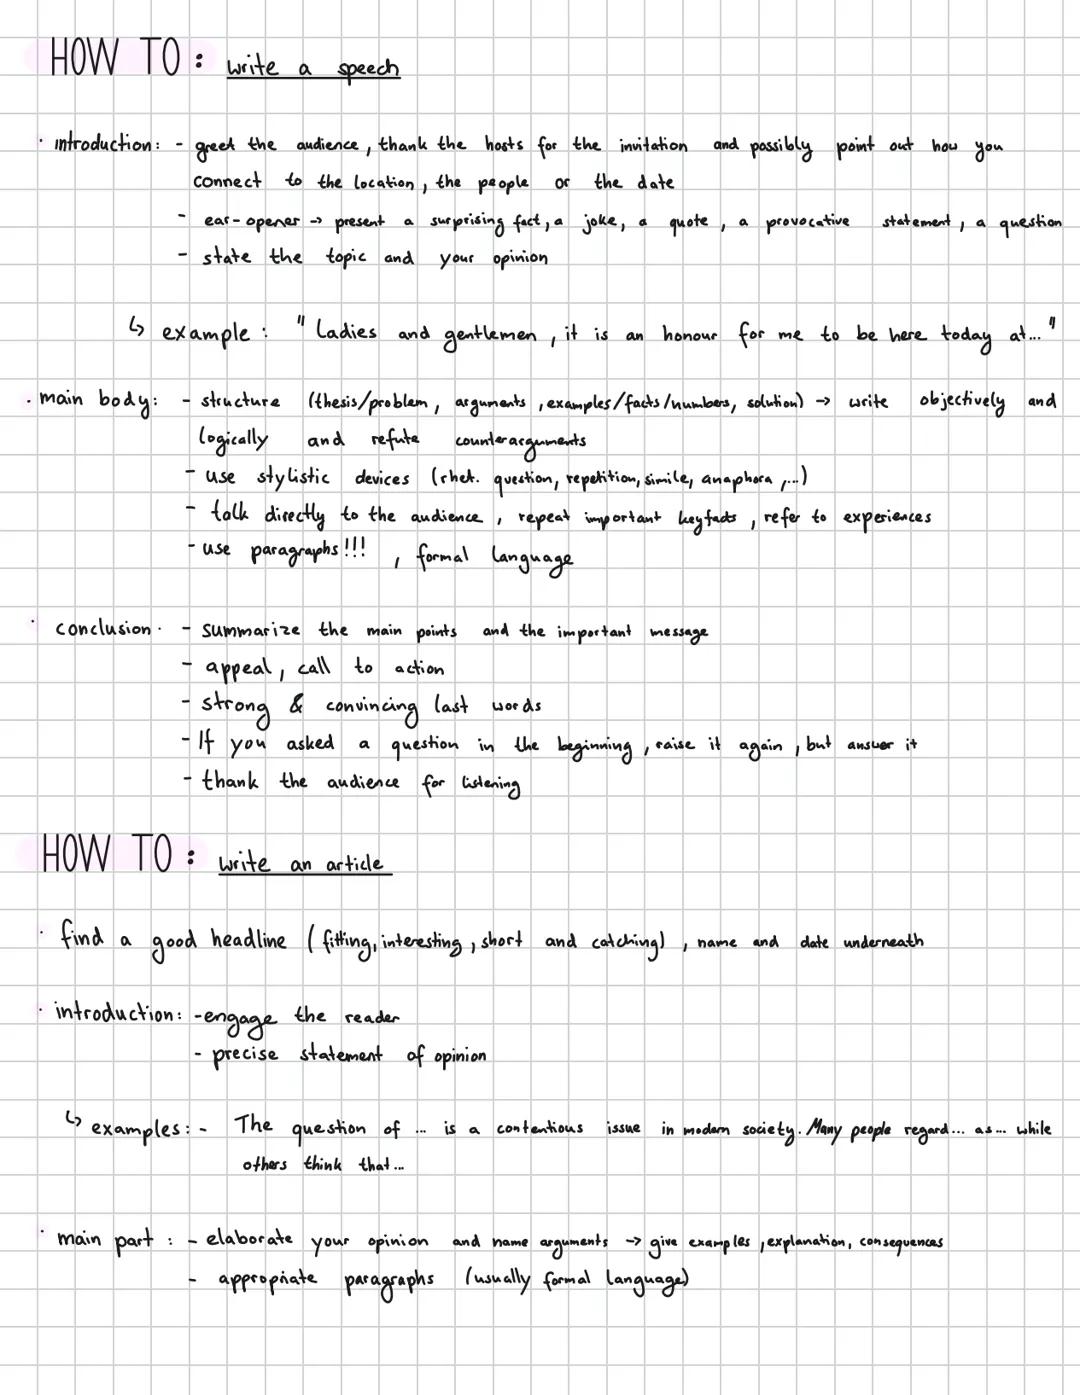 HOW TO: write a speech
· introduction: - greet the audience, thank the hosts for the invitation and possibly point out how you
connect to the location, the people or the date
- ear-opener → present a surprising fact, a joke, a quote, a provocative statement, a question
- state the topic and your opinion
↳ example: "Ladies and gentlemen, it is an honour for me to be here today at..."
· main body: - structure (thesis/problem, arguments, examples/facts/numbers, solution) → write objectively and
logically and refute counterarguments
- use stylistic devices (rhet. question, repetition, simile, anaphora,...)
- talk directly to the audience, repeat important keyfacts, refer to experiences
- use paragraphs!!!, formal language
· conclusion· - summarize the main points and the important message
- appeal, call to action
- strong & convincing last words
- If you asked a question in the beginning, raise it again, but answer it
- thank the audience for listening
HOW TO: write an article
· find a good headline (fitting, interesting, short and catching), name and date underneath
· introduction: - engage the reader
- precise statement of opinion
↳ examples: - The question of ... is a contentious issue in modern society. Many people regard... as... while
others think that...
· main part: - elaborate your opinion and name arguments → give examples, explanation, consequences
- appropriate paragraphs (usually formal language)